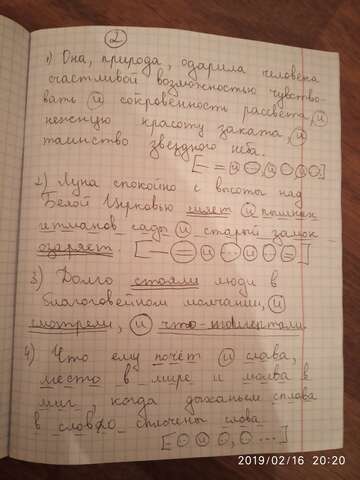 2
1) Она, природа, одарила человека
счастливой возможностью чувство-
вать и сокровенность рассвета, и
нежную красоту заката, и
таинство звездного неба.
[— = и О, и О, и О.]
2) Луна спокойно с высоты над
Белой Церковью сияет и пышных
гетманов сады и старый замок
озаряет.
3) Долго стояли люди в
благоговейном молчании, и
смотрели, и что-то шептали.
4) Что ему почёт и слава,
место в мире и молва в
миг, когда дыханьем сплава
в слово сплочены слова.
[О и О, О ...]
2019/02/16 20:20